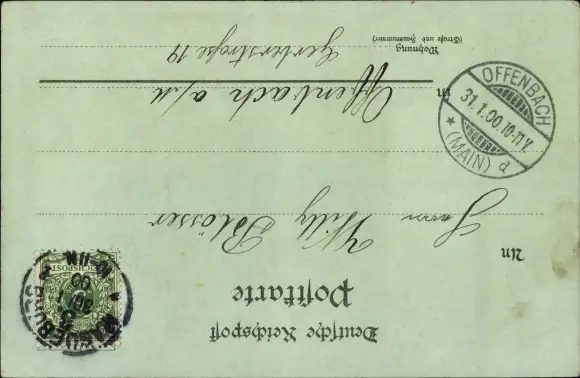 Deutsche Reichspost
Postkarte
An
Herrn Willy Blösser
in
Offenbach a/M
Wohnung
(Straße und Hausnummer)
Gerberstraße 19
OFFENBACH
31.1.00.10-11V.
* (MAIN) d
REICHSPOST